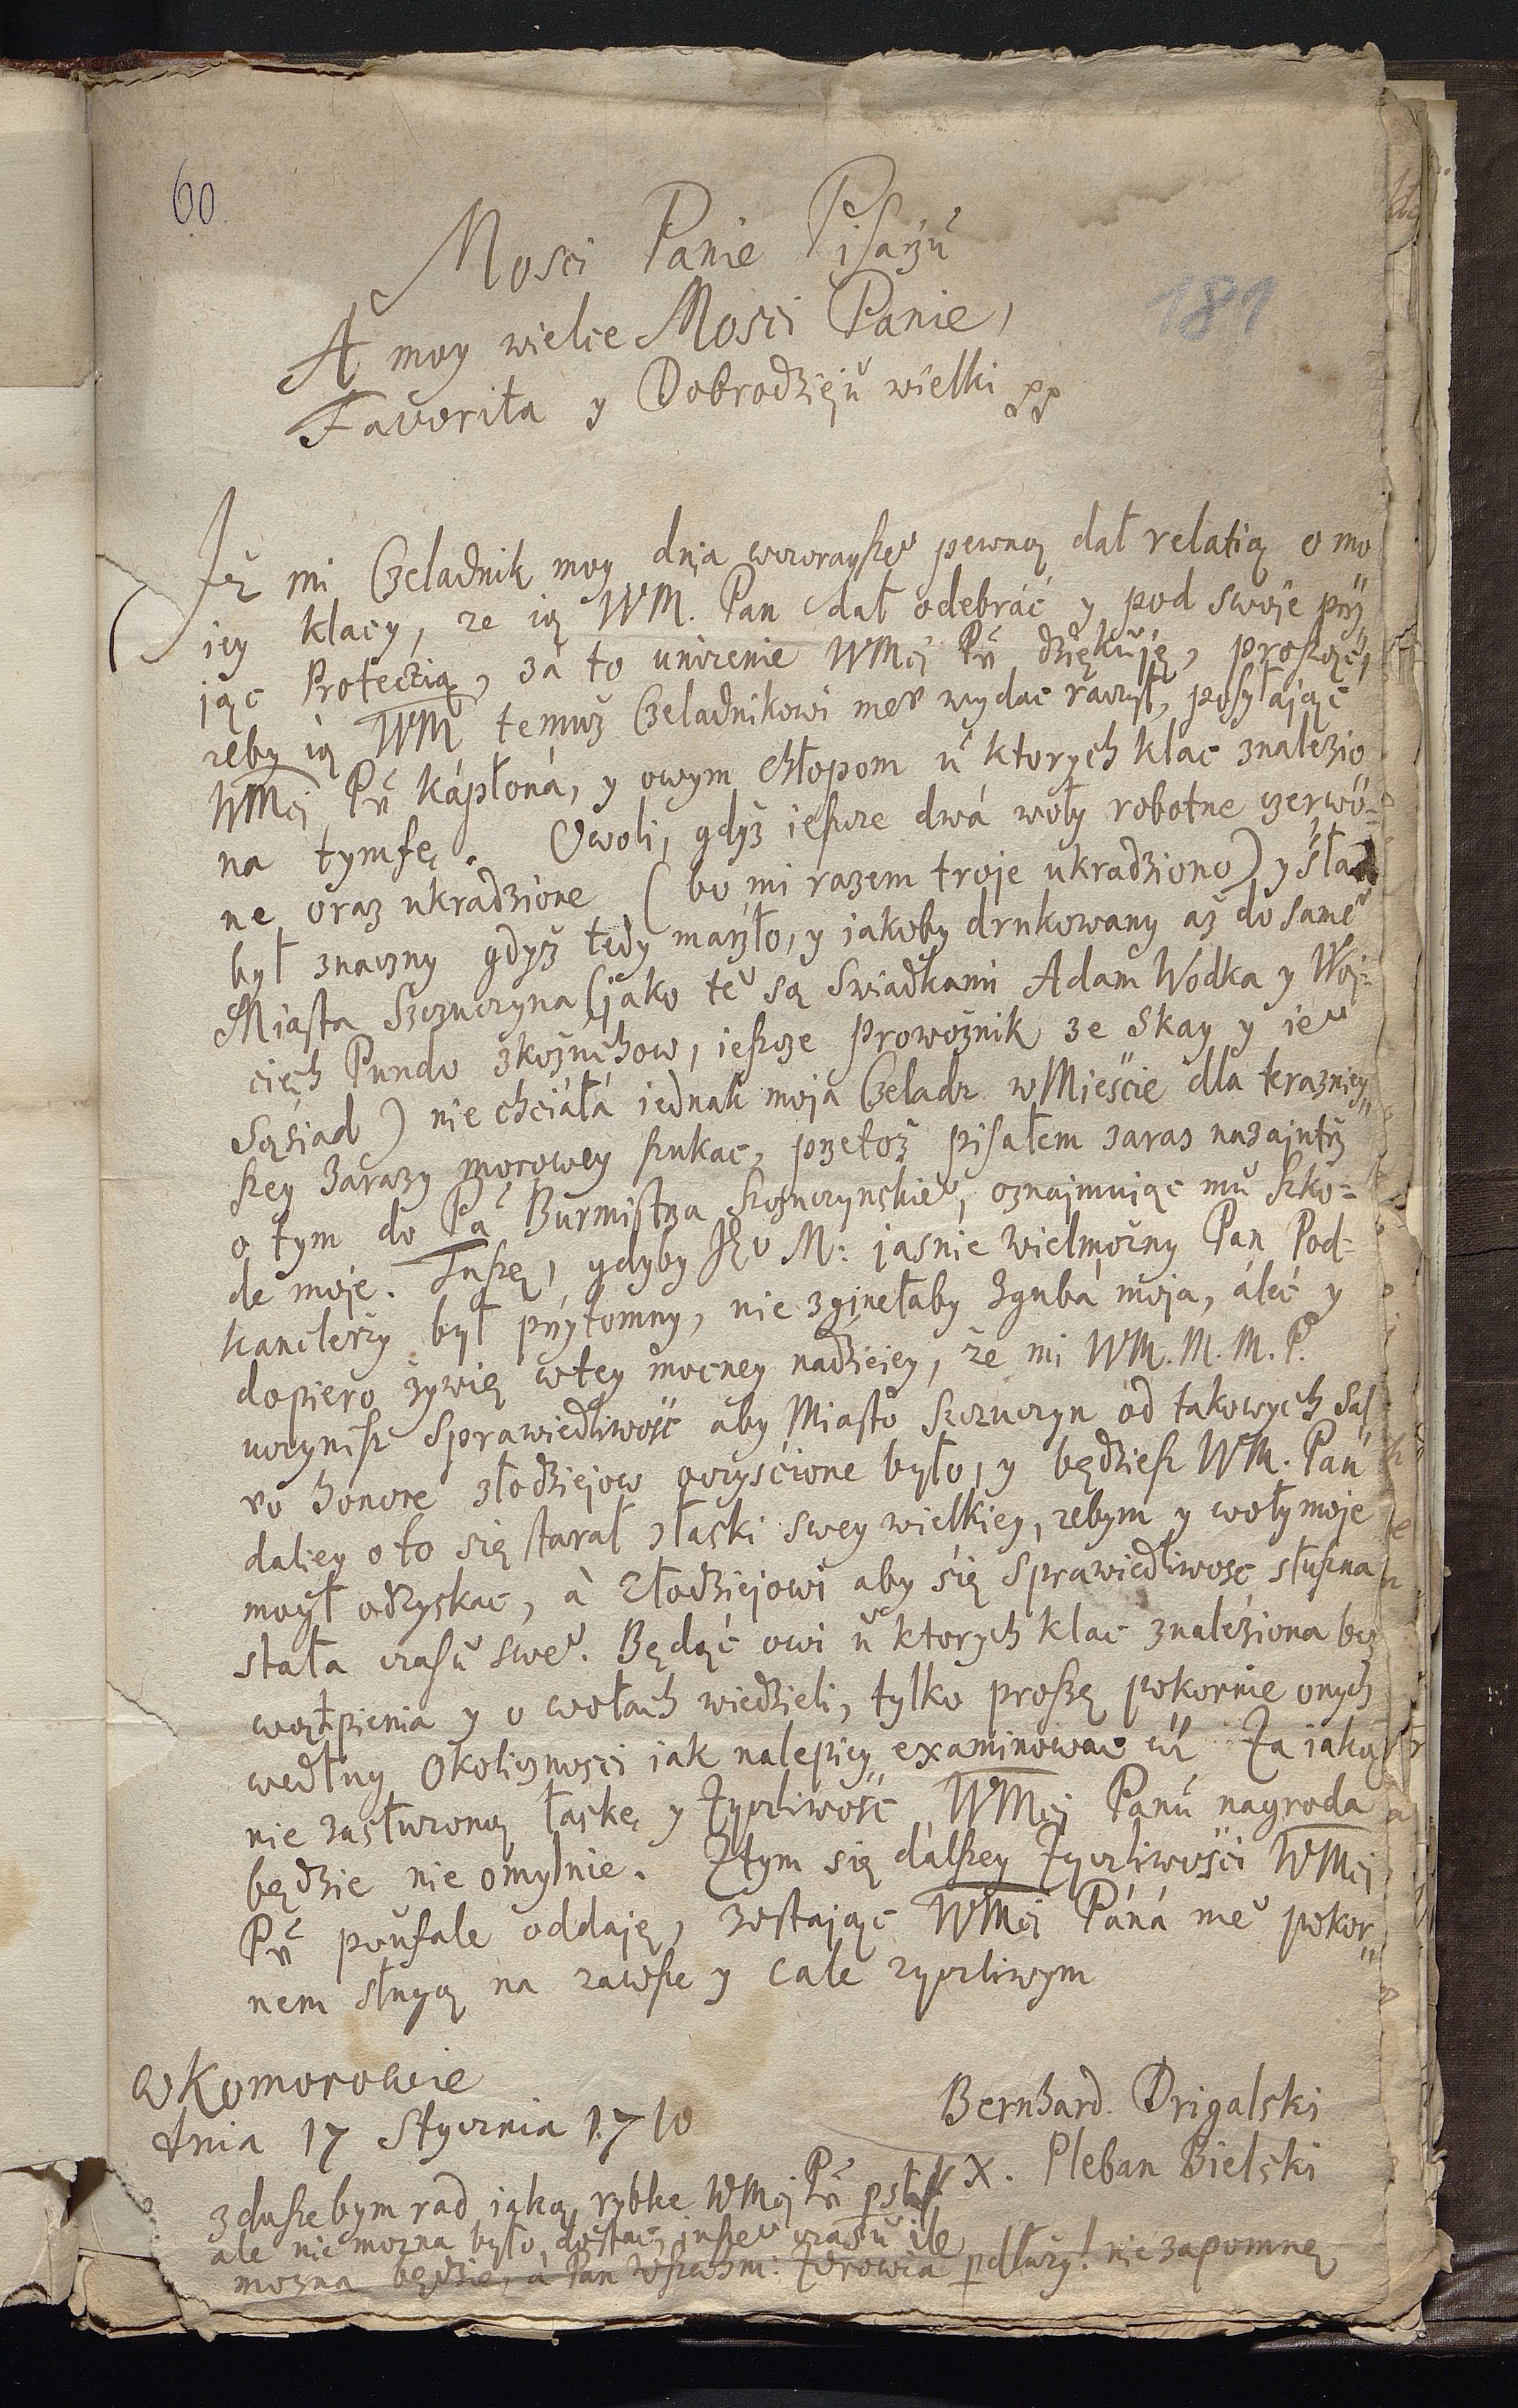 60.
181
Mosci Panie Pisarzu
A moy wielce Mosci Panie,
Favorita y Dobrodzieju wielki
Jz mi Czeladnik moy dnia wczorayszeº pewną dał relatią o mo
iey klacy, ze ią WM. Pan dał odebráć y pod swoje przy
jąc Protectią, zá to unizenie WMći Pū dziękuję, proszęć,
zeby ią WM temuz Czeladnikowi meº wydac raczył, posyłając
WMći Pū kápłoná, y owym chłopom u ktorych klac znalezio
na tymfę. Owoli, gdyz iescze dwá woły robotne czerwo=
ne oraz ukradzione (bo mi razem troje ukradziono) y ślad
był znaczny gdyz tedy marzło, y jakoby drukowany az do sameº
Miasta Szczuczyna (jako teº są swiadkami Adam Wodka y Woj=
ciech Pundo zkozuchow, iescze prowoznik ze Skay y ieº
Sąsiad) nie chciáłá iednak moja Czeladz w Mieście dla terazniey
szey Zarazy morowey szukac, przetoz pisałem zaras nazajutrz
o tym do Pa Burmistrza szczuczynskieº, oznajmując mu szko=
de moje. Tuszę, gdyby Jeº M: jasnie wielmozny Pan Pod=
kanclerzy był przytomny, nie zginełaby Zguba moja, áleć y
dopiero zywię w tey mocney nadzieiey, ze mi WM. M. M. P.
uczynisz Sprawiedliwość aby Miasto Szczuczyn od takowych sal
vo honore złodziejow oczyścione było, y będziesz WM. Pan
daliey o to się starał z łaski swey wielkiey, zebym y woły moje
mogł odzyskac, à Złodziejowi aby się Sprawiedliwosc słuszna
stała czasu sweº. Będąc owi u ktorych klac znaleziona bez
wątpienia y o wołach wiedzieli, tylko proszę pokornie onych
według Okolicznosci iak nalepiey examinowac Za iaką
nie zasłuzoną łaskę y Zyczliwość WMći Panu nagroda
będzie nie omylnie. Ztym się dalszey Zyczliwości WMći
Pū poufale oddaję, zostając WMći Páná meº pokor
nem sługą na zawsze y cale zyczliwym
w Komorowie
dnia 17 Stycznia 1710
Bernhard Drigalski
X. Pleban Bielski
z duszebym rad iaką rybke WMći Pū
ale nie mozna było dostac, inszeº czasu ile
mozna będzie, à Pan Zdrowia pdłuzy! nie zapomnę